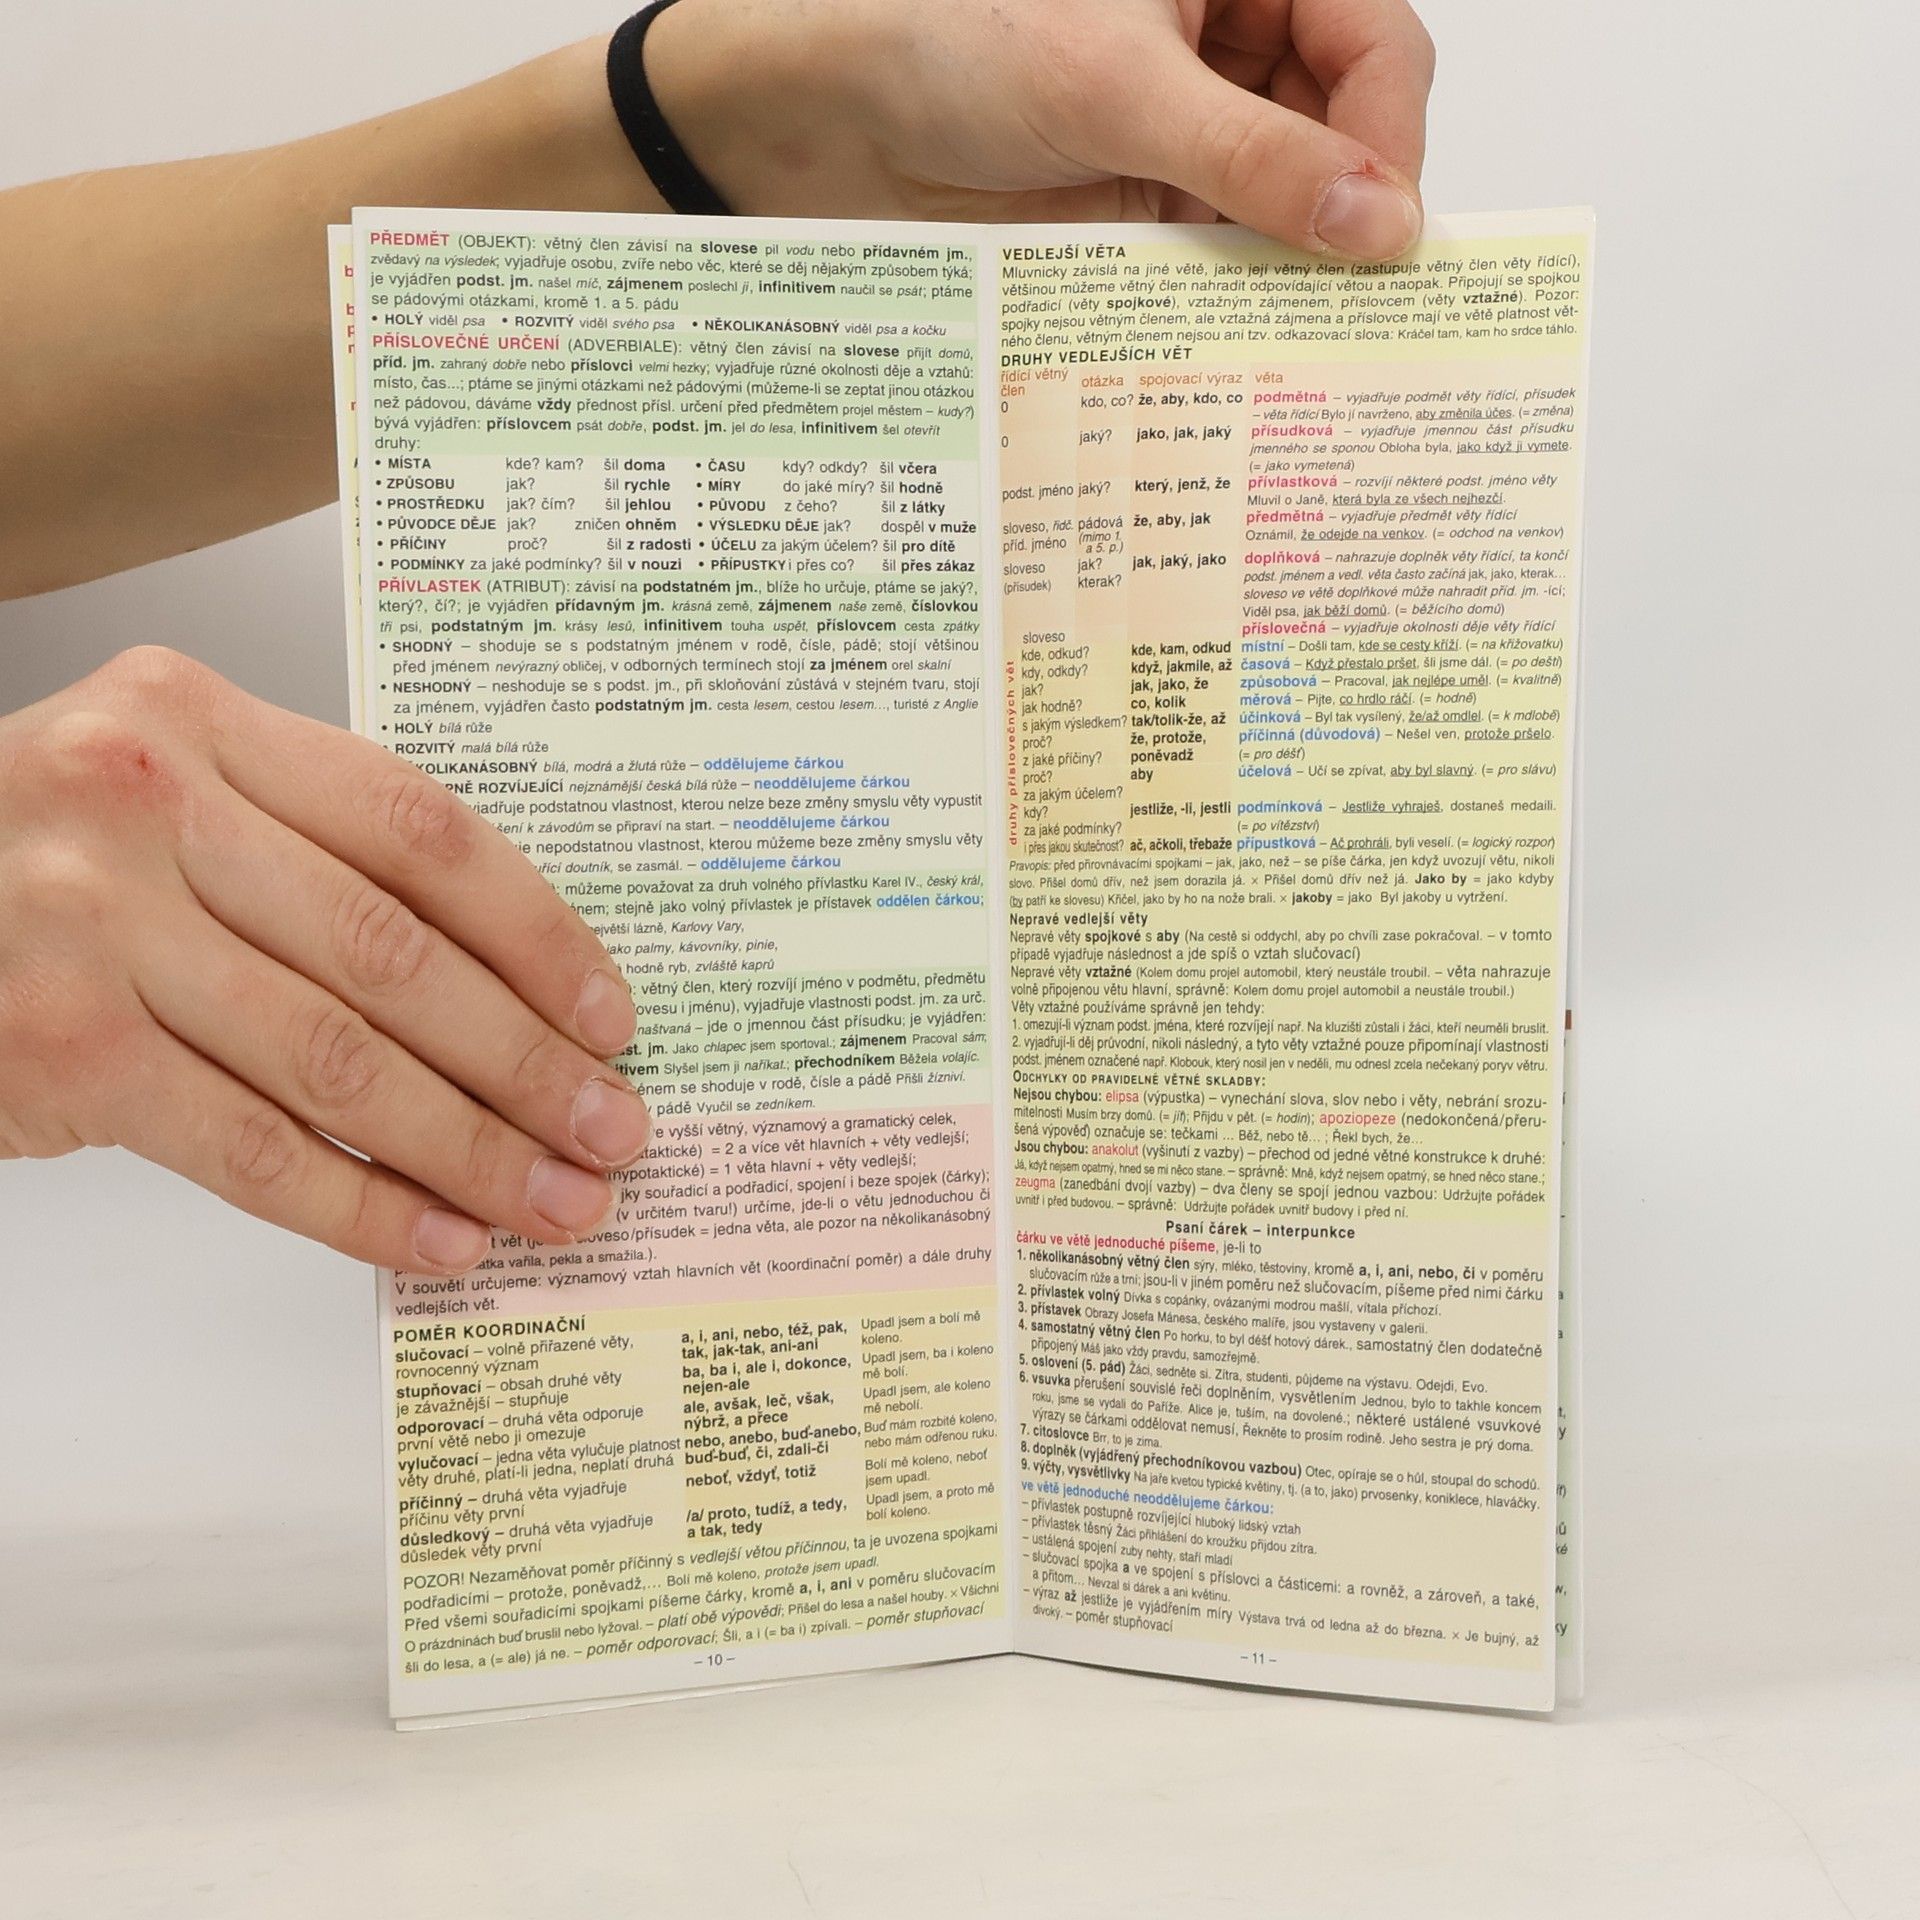 PŘEDMĚT (OBJEKT): větný člen závisí na slovese pil vodu nebo přídavném jm.,
zvědavý na výsledek; vyjadřuje osobu, zvíře nebo věc, které se děj nějakým způsobem týká;
je vyjádřen podst. jm. našel míč, zájmenem poslechl ji, infinitivem naučil se psát; ptáme
se pádovými otázkami, kromě 1. a 5. pádu
• HOLÝ viděl psa • ROZVITÝ viděl svého psa • NĚKOLIKANÁSOBNÝ viděl psa a kočku
PŘÍSLOVEČNÉ URČENÍ (ADVERBIALE): větný člen závisí na slovese přijít domů,
příd. jm. zahraný dobře nebo příslovci velmi hezky; vyjadřuje různé okolnosti děje a vztahů:
místo, čas...; ptáme se jinými otázkami než pádovými (můžeme-li se zeptat jinou otázkou
než pádovou, dáváme vždy přednost přísl. určení před předmětem projel městem – kudy?)
bývá vyjádřen: příslovcem psát dobře, podst. jm. jel do lesa, infinitivem šel otevřít
druhy:
• MÍSTA kde? kam? šil doma • ČASU kdy? odkdy? šil včera
• ZPŮSOBU jak? šil rychle • MÍRY do jaké míry? šil hodně
• PROSTŘEDKU jak? čím? šil jehlou • PŮVODU z čeho? šil z látky
• PŮVODCE DĚJE jak? zničen ohněm • VÝSLEDKU DĚJE jak? dospěl v muže
• PŘÍČINY proč? šil z radosti • ÚČELU za jakým účelem? šil pro dítě
• PODMÍNKY za jaké podmínky? šil v nouzi • PŘÍPUSTKY i přes co? šil přes zákaz
PŘÍVLASTEK (ATRIBUT): závisí na podstatném jm., blíže ho určuje, ptáme se jaký?,
který?, čí?; je vyjádřen přídavným jm. krásná země, zájmenem naše země, číslovkou
tři psi, podstatným jm. krásy lesů, infinitivem touha uspět, příslovcem cesta zpátky
• SHODNÝ – shoduje se s podstatným jménem v rodě, čísle, pádě; stojí většinou
před jménem nevýrazný obličej, v odborných termínech stojí za jménem orel skalní
• NESHODNÝ – neshoduje se s podst. jm., při skloňování zůstává v stejném tvaru, stojí
za jménem, vyjádřen často podstatným jm. cesta lesem, cestou lesem..., turisté z Anglie
• HOLÝ bílá růže
ROZVITÝ malá bílá růže
KOLIKANÁSOBNÝ bílá, modrá a žlutá růže – oddělujeme čárkou
PNĚ ROZVÍJEJÍCÍ nejznámější česká bílá růže – neoddělujeme čárkou
yjadřuje podstatnou vlastnost, kterou nelze beze změny smyslu věty vypustit
šení k závodům se připraví na start. – neoddělujeme čárkou
je nepodstatnou vlastnost, kterou můžeme beze změny smyslu věty
uřící doutník, se zasmál. – oddělujeme čárkou
): můžeme považovat za druh volného přívlastku Karel IV., český král,
énem; stejně jako volný přívlastek je přístavek oddělen čárkou;
největší lázně, Karlovy Vary,
jako palmy, kávovníky, pinie,
hodně ryb, zvláště kaprů
): větný člen, který rozvíjí jméno v podmětu, předmětu
ovesu i jménu), vyjadřuje vlastnosti podst. jm. za urč.
naštvaná – jde o jmennou část přísudku; je vyjádřen:
st. jm. Jako chlapec jsem sportoval.; zájmenem Pracoval sám;
itivem Slyšel jsem ji naříkat.; přechodníkem Běžela volajíc.
énem se shoduje v rodě, čísle a pádě Přišli žízniví.
pádě Vyučil se zedníkem.
e vyšší větný, významový a gramatický celek,
taktické) = 2 a více vět hlavních + věty vedlejší;
hypotaktické) = 1 věta hlavní + věty vedlejší;
jky souřadicí a podřadicí, spojení i beze spojek (čárky);
(v určitém tvaru!) určíme, jde-li o větu jednoduchou či
t vět sloveso/přísudek = jedna věta, ale pozor na několikanásobný
atka vařila, pekla a smažila.).
V souvětí určujeme: významový vztah hlavních vět (koordinační poměr) a dále druhy
vedlejších vět.
POMĚR KOORDINAČNÍ
slučovací – volně přiřazené věty, a, i, ani, nebo, též, pak, Upadl jsem a bolí mě
rovnocenný význam tak, jak-tak, ani-ani koleno.
stupňovací – obsah druhé věty ba, ba i, ale i, dokonce, Upadl jsem, ba i koleno
je závažnější – stupňuje nejen-ale mě bolí.
odporovací – druhá věta odporuje ale, avšak, leč, však, Upadl jsem, ale koleno
první větě nebo ji omezuje nýbrž, a přece mě nebolí.
vylučovací – jedna věta vylučuje platnost nebo, anebo, buď-anebo, Buď mám rozbité koleno,
věty druhé, platí-li jedna, neplatí druhá buď-buď, či, zdali-či nebo mám odřenou ruku.
příčinný – druhá věta vyjadřuje neboť, vždyť, totiž Bolí mě koleno, neboť
příčinu věty první jsem upadl.
důsledkový – druhá věta vyjadřuje /a/ proto, tudíž, a tedy, Upadl jsem, a proto mě
důsledek věty první a tak, tedy bolí koleno.
POZOR! Nezaměňovat poměr příčinný s vedlejší větou příčinnou, ta je uvozena spojkami
podřadicími – protože, poněvadž,... Bolí mě koleno, protože jsem upadl.
Před všemi souřadicími spojkami píšeme čárky, kromě a, i, ani v poměru slučovacím
O prázdninách buď bruslil nebo lyžoval. – platí obě výpovědi; Přišel do lesa a našel houby. × Všichni
šli do lesa, a (= ale) já ne. – poměr odporovací; Šli, a i (= ba i) zpívali. – poměr stupňovací
– 10 –
VEDLEJŠÍ VĚTA
Mluvnicky závislá na jiné větě, jako její větný člen (zastupuje větný člen věty řídící),
většinou můžeme větný člen nahradit odpovídající větou a naopak. Připojují se spojkou
podřadicí (věty spojkové), vztažným zájmenem, příslovcem (věty vztažné). Pozor:
spojky nejsou větným členem, ale vztažná zájmena a příslovce mají ve větě platnost vět-
ného členu, větným členem nejsou ani tzv. odkazovací slova: Kráčel tam, kam ho srdce táhlo.
DRUHY VEDLEJŠÍCH VĚT
řídící větný člen otázka spojovací výraz věta
0 kdo, co? že, aby, kdo, co podmětná – vyjadřuje podmět věty řídící, přísudek
– věta řídící Bylo jí navrženo, aby změnila účes. (= změna)
0 jaký? jako, jak, jaký přísudková – vyjadřuje jmennou část přísudku
jmenného se sponou Obloha byla, jako když ji vymete.
(= jako vymetená)
podst. jméno jaký? který, jenž, že přívlastková – rozvíjí některé podst. jméno věty
Mluvil o Janě, která byla ze všech nejhezčí.
sloveso, řidč. pádová že, aby, jak předmětná – vyjadřuje předmět věty řídící
příd. jméno (mimo 1. a 5. p.) Oznámil, že odejde na venkov. (= odchod na venkov)
sloveso jak? jak, jaký, jako doplňková – nahrazuje doplněk věty řídící, ta končí
(přísudek) kterak? podst. jménem a vedl. věta často začíná jak, jako, kterak...
sloveso ve větě doplňkové může nahradit příd. jm. -ící;
Viděl psa, jak běží domů. (= běžícího domů)
příslovečná – vyjadřuje okolnosti děje věty řídící
druhy příslovečných vět
sloveso
kde, odkud? kde, kam, odkud místní – Došli tam, kde se cesty kříží. (= na křižovatku)
kdy, odkdy? když, jakmile, až časová – Když přestalo pršet, šli jsme dál. (= po dešti)
jak? jak, jako, že způsobová – Pracoval, jak nejlépe uměl. (= kvalitně)
jak hodně? co, kolik měrová – Pijte, co hrdlo ráčí. (= hodně)
s jakým výsledkem? tak/tolik-že, až účinková – Byl tak vysílený, že/až omdlel. (= k mdlobě)
proč? že, protože, příčinná (důvodová) – Nešel ven, protože pršelo.
z jaké příčiny? poněvadž (= pro déšť)
proč? aby účelová – Učí se zpívat, aby byl slavný. (= pro slávu)
za jakým účelem?
kdy? jestliže, -li, jestli podmínková – Jestliže vyhraješ, dostaneš medaili.
za jaké podmínky? (= po vítězství)
i přes jakou skutečnost? ač, ačkoli, třebaže přípustková – Ač prohráli, byli veselí. (= logický rozpor)
Pravopis: před přirovnávacími spojkami – jak, jako, než – se píše čárka, jen když uvozují větu, nikoli
slovo. Přišel domů dřív, než jsem dorazila já. × Přišel domů dřív než já. Jako by = jako kdyby
(by patří ke slovesu) Křičel, jako by ho na nože brali. × jakoby = jako Byl jakoby u vytržení.
Nepravé vedlejší věty
Nepravé věty spojkové s aby (Na cestě si oddychl, aby po chvíli zase pokračoval. – v tomto
případě vyjadřuje následnost a jde spíš o vztah slučovací)
Nepravé věty vztažné (Kolem domu projel automobil, který neustále troubil. – věta nahrazuje
volně připojenou větu hlavní, správně: Kolem domu projel automobil a neustále troubil.)
Věty vztažné používáme správně jen tehdy:
1. omezují-li význam podst. jména, které rozvíjejí např. Na kluzišti zůstali i žáci, kteří neuměli bruslit.
2. vyjadřují-li děj průvodní, nikoli následný, a tyto věty vztažné pouze připomínají vlastnosti
podst. jménem označené např. Klobouk, který nosil jen v neděli, mu odnesl zcela nečekaný poryv větru.
ODCHYLKY OD PRAVIDELNÉ VĚTNÉ SKLADBY:
Nejsou chybou: elipsa (výpustka) – vynechání slova, slov nebo i věty, nebrání srozu-
mitelnosti Musím brzy domů. (= jít); Přijdu v pět. (= hodin); apoziopeze (nedokončená/přeru-
šená výpověď) označuje se: tečkami ... Běž, nebo tě... ; Řekl bych, že...
Jsou chybou: anakolut (vyšinutí z vazby) – přechod od jedné větné konstrukce k druhé:
Já, když nejsem opatrný, hned se mi něco stane. – správně: Mně, když nejsem opatrný, se hned něco stane.;
zeugma (zanedbání dvojí vazby) – dva členy se spojí jednou vazbou: Udržujte pořádek
uvnitř i před budovou. – správně: Udržujte pořádek uvnitř budovy i před ní.
Psaní čárek – interpunkce
čárku ve větě jednoduché píšeme, je-li to
1. několikanásobný větný člen sýry, mléko, těstoviny, kromě a, i, ani, nebo, či v poměru
slučovacím růže a trní; jsou-li v jiném poměru než slučovacím, píšeme před nimi čárku
2. přívlastek volný Dívka s copánky, ovázanými modrou mašlí, vítala příchozí.
3. přístavek Obrazy Josefa Mánesa, českého malíře, jsou vystaveny v galerii.
4. samostatný větný člen Po horku, to byl déšť hotový dárek., samostatný člen dodatečně
připojený Máš jako vždy pravdu, samozřejmě.
5. oslovení (5. pád) Žáci, sedněte si. Zítra, studenti, půjdeme na výstavu. Odejdi, Evo.
6. vsuvka přerušení souvislé řeči doplněním, vysvětlením Jednou, bylo to takhle koncem
roku, jsme se vydali do Paříže. Alice je, tuším, na dovolené.; některé ustálené vsuvkové
výrazy se čárkami oddělovat nemusí, Řekněte to prosím rodině. Jeho sestra je prý doma.
7. citoslovce Brr, to je zima.
8. doplněk (vyjádřený přechodníkovou vazbou) Otec, opíraje se o hůl, stoupal do schodů.
9. výčty, vysvětlivky Na jaře kvetou typické květiny, tj. (a to, jako) prvosenky, koniklece, hlaváčky.
ve větě jednoduché neoddělujeme čárkou:
– přívlastek postupně rozvíjející hluboký lidský vztah
– přívlastek těsný Žáci přihlášení do kroužku přijdou zítra.
– ustálená spojení zuby nehty, staří mladí
– slučovací spojka a ve spojení s příslovci a částicemi: a rovněž, a zároveň, a také,
a přitom... Nevzal si dárek a ani květinu.
– výraz až jestliže je vyjádřením míry Výstava trvá od ledna až do března. × Je bujný, až
divoký. – poměr stupňovací
– 11 –